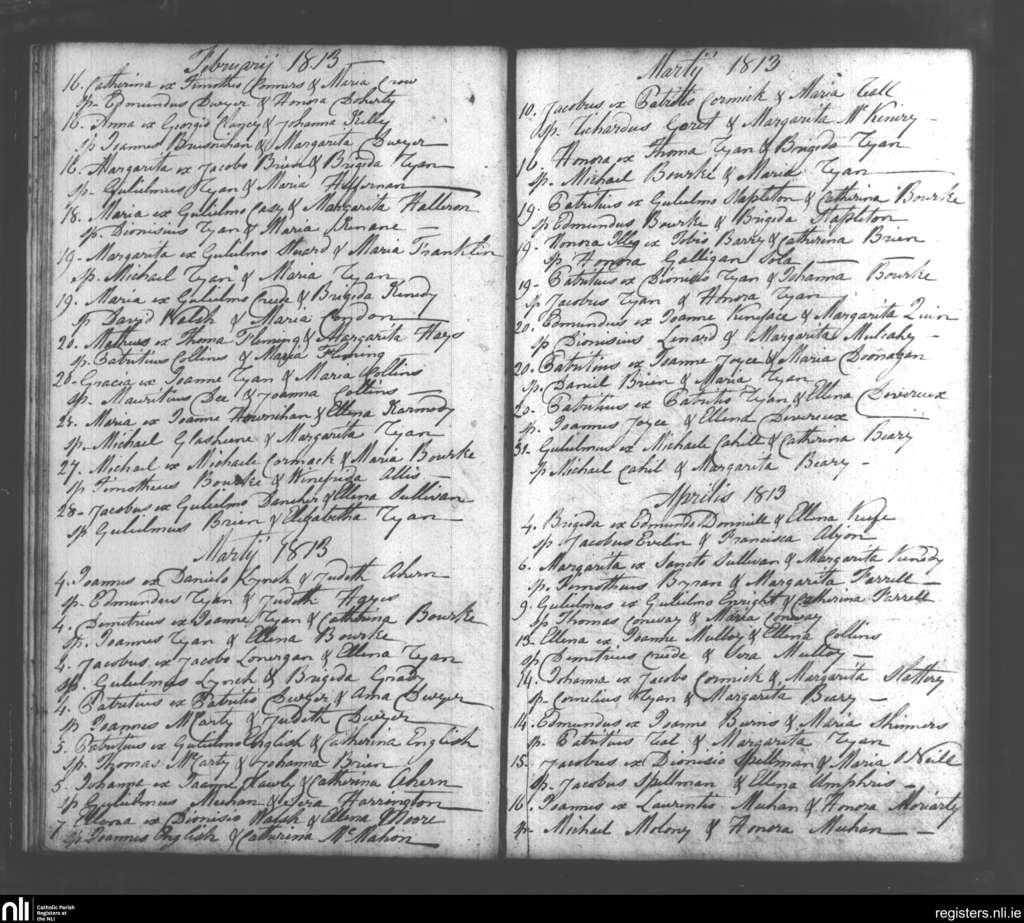 Februarij 1813
16. Catherina ex Timotheo Conners & Maria Crow
Sp. Edmundus Dwyer & Honora Doherty
16. Anna ex Georgio Clancy & Johanna Kelly
Sp Joannes & Margarita Dwyer
16. Margarita ex Jacobo Brien & Brigida Ryan
Sp. Gulielmus Ryan & Maria Heffernan
18. Maria ex Gulielmo Casy & Margarita Halleron
Sp. Dionisius Ryan & Maria
19. Margarita ex Gulielmo & Maria Franklin
Sp. Michael Ryan & Maria Ryan
19. Maria ex Gulielmo Creede & Brigida Kenedy
Sp David Walsh & Maria Condon
20. Matheus ex Thoma Fleming & Margarita Hays
Sp. Patritius Collins & Maria Fleming
20. Gracia ex Joanne Ryan & Maria Collins
Sp. Mauritius Dee & Joanna Collins
25. Maria ex Joanne Hournihan & Ellena Karmody
Sp. Michael Glasheene & Margarita Ryan
27. Michael ex Michaele Cormack & Maria Bourke
Sp Timotheus Bourke & Winefrida Allis
28. Jacobus ex Gulielmo & Ellena Sullivan
Sp Gulielmus Brien & Elizabetha Ryan
Martij 1813
4. Joannes ex Danielo Lynch & Judith Ahern
Sp. Edmundus Ryan & Judith Hayes
4. Demetrius ex Joanne Ryan & Catherina Bourke
Sp. Joannes Ryan & Ellena Bourke
4. Jacobus ex Jacobo Lonergan & Ellena Ryan
Sp. Gulielmus Lynch & Brigida Grady
4. Patritius ex Patritio Dwyer & Ana Dwyer
Sp Joannes McCarty & Judith Dwyer
5. Patritius ex Gulielmo English & Catherina English
Sp. Thomas McCarty & Johanna Brien
5. Johanna ex Joanne Lawly & Catherina Ahern
Sp Gulielmus Meehan & Vera Harrington
7. Ellena ex Dionisio Walsh & Ellena Moore
Sp Joannes English & Catherina McMahon
Martij 1813
10. Jacobus ex Patritio Cormick & Maria Teall
Sp. Richardus & Margarita McKeniry
16. Honora ex Thoma Ryan & Brigida Ryan
Sp. Michael Bourke & Maria Ryan
19. Patritius ex Gulielmo Stapleton & Catherina Bourke
Sp Edmundus Bourke & Brigida Stapleton
19. Honora Illeg ex Tobio Barry & Catherina Brien
Sp Honora Galligan Sola
19. Patritius ex Dionisio Ryan & Johanna Bourke
Sp Jacobus Ryan & Honora Ryan
20. Edmundus ex Joanne & Margarita Quin
Sp Dionisius Linard & Margarita Mulcahy
20. Patritius ex Joanne Joyce & Maria Doonagan
Sp. Daniel Brien & Maria Ryan
20. Patritius ex Patritio Ryan & Ellena Devereux
Sp. Joannes Joyce & Ellena Devereux
31. Gulielmus ex Michaele Cahill & Catherina Beary
Sp Michael Cahil & Margarita Beary
Aprilis 1813
4. Brigida ex Edmundo Donnill & Ellena Keefe
Sp Jacobus Evelin & Francisca
6. Margarita ex Sancto Sullivan & Margarita Kenedy
Sp. Timotheus Bryran & Margarita Farrell
9. Gulielmus ex Gulielmo Enright & Catherina Farrell
Sp Thomas Conway & Maria Conway
13. Ellena ex Joanne Mulloy & Ellena Collins
Sp Demetrius Creede & Vera Mulloy
14. Johanna ex Jacobo Cormick & Margarita Slattery
Sp. Cornelius Ryan & Margarita Beary
14. Edmundus ex Joanne Burns & Maria Skinners
Sp. Patritius Teal & Margarita Ryan
15. Jacobus ex Dionisio Spellman & Maria ONeill
Sp. Jacobus Spellman & Ellena Umphris
16. Joannes ex Laurentio Meehan & Honora Moriarty
Sp. Michael Molony & Honora Meehan
nli Catholic Parish
Registers at
the NLI
registers.nli.ie